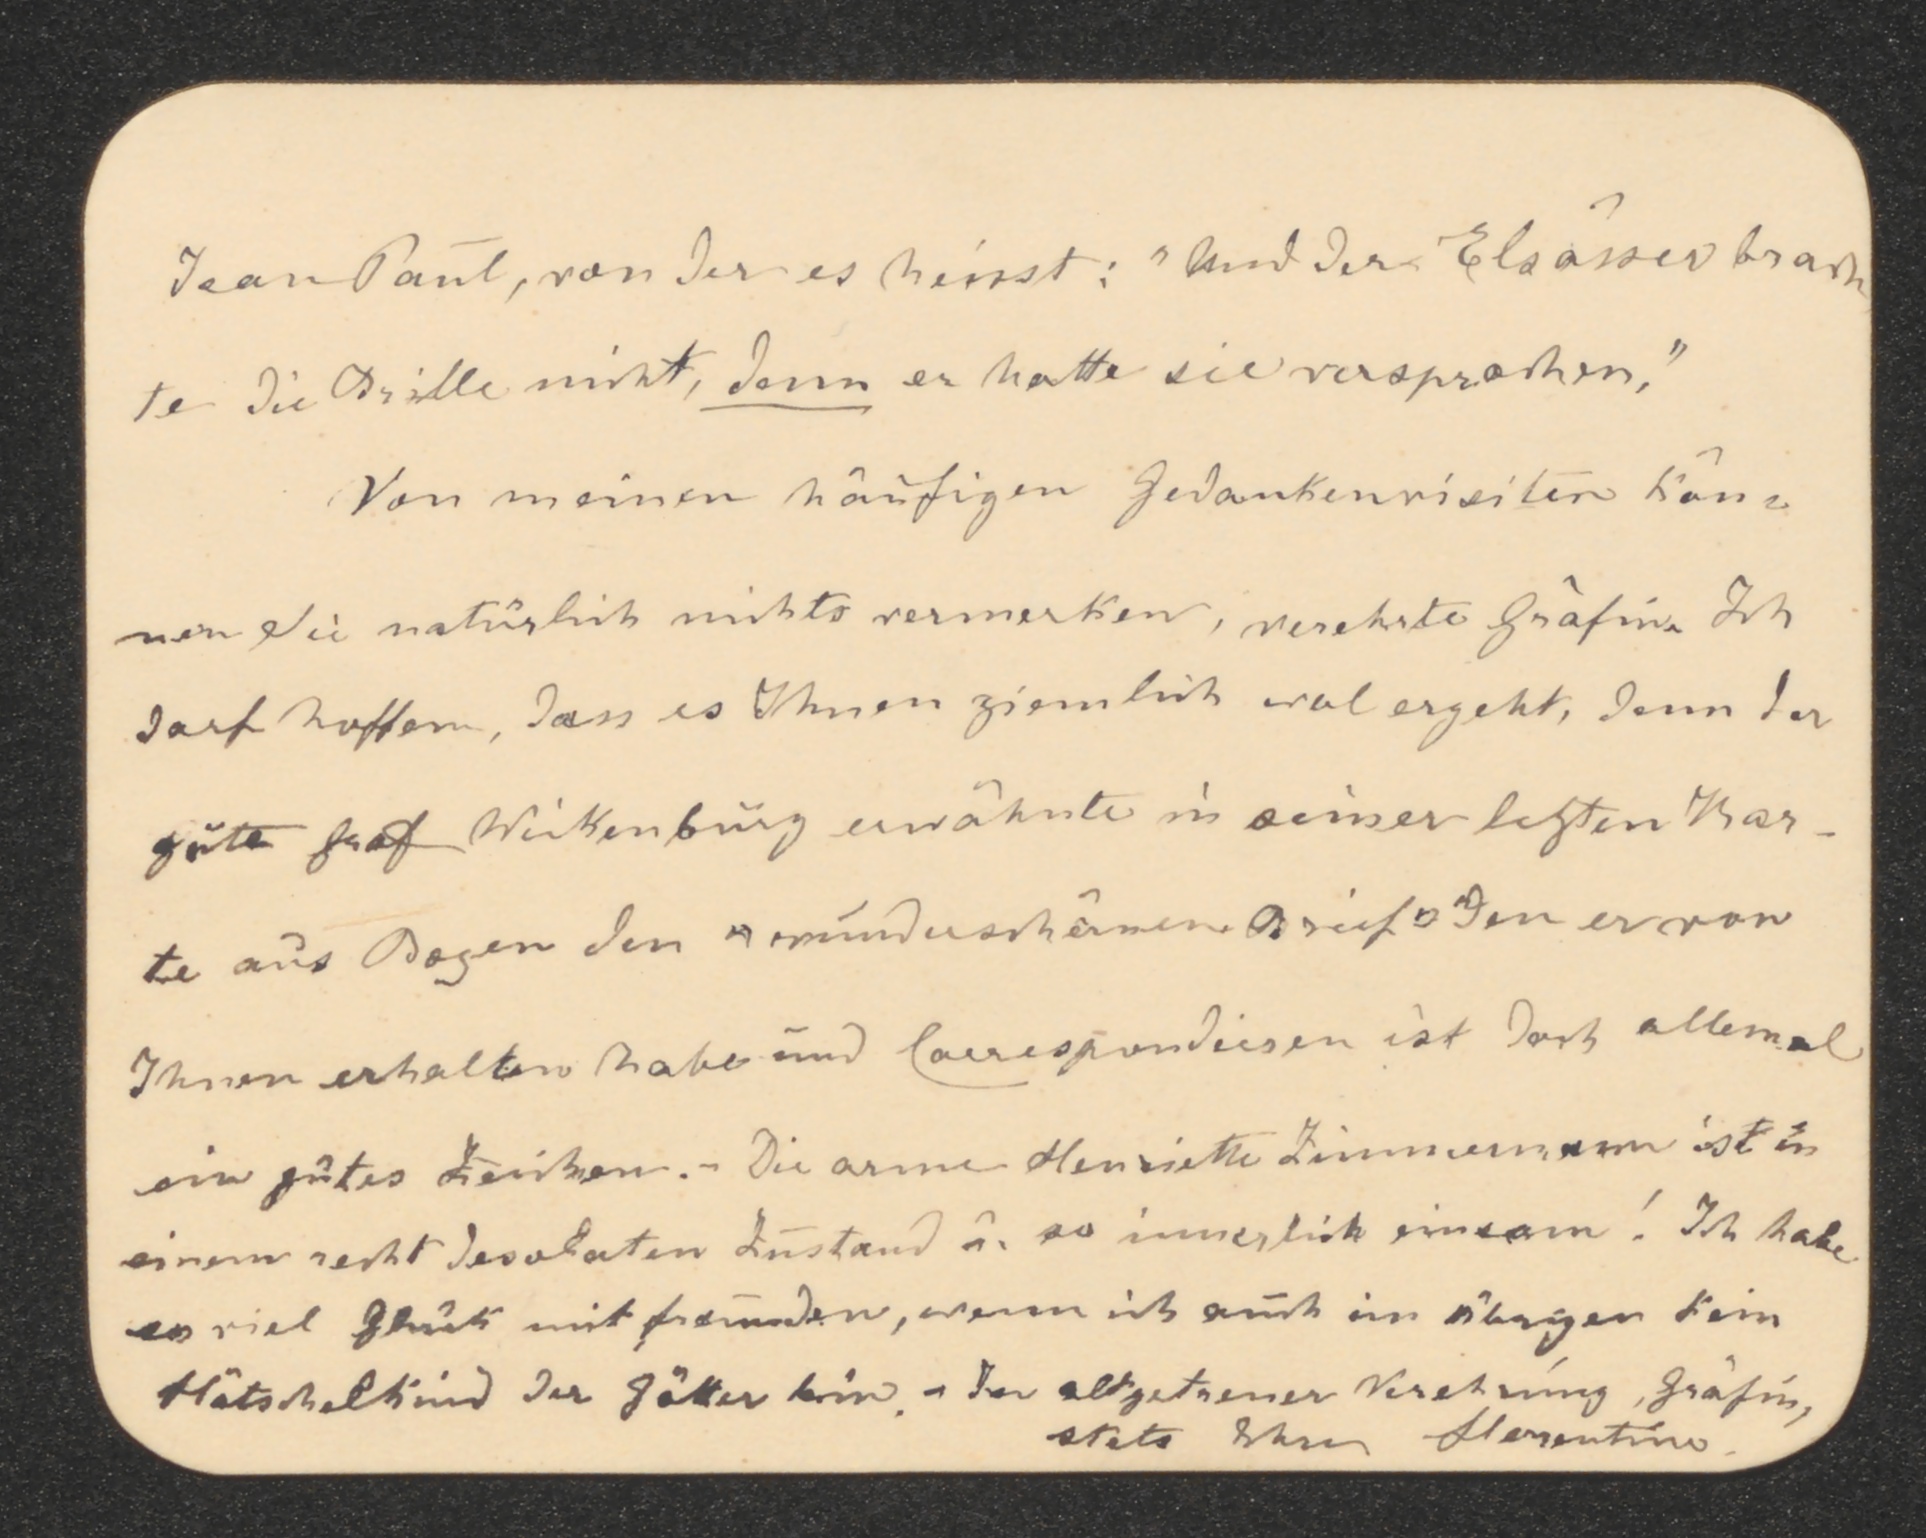 Jean Paul, von der es heisst: "Und der Elsässer brach
te die Brille nicht, denn er hatte sie versprochen."
Von meinen häufigen Gedankenvisiten kön=
nen Sie natürlich nichts vermerken, verehrte Gräfin. Ich
darf hoffen, dass es Ihnen ziemlich wol ergeht, denn der
gute Graf Wickenburg erwähnte in seiner letzten Kar-
te aus Bozen den "wunderschönen Brief" den er von
Ihnen erhalten habe und Correspondieren ist doch allemal
ein gutes Zeichen. - Die arme Henriette Zimmermann ist in
einem recht desolaten Zustand u. so innerlich einsam! Ich habe
so viel Glück mit Freunden, wenn ich auch im übrigen kein
Hätschelkind der Götter bin. - In altgetreuer Verehrung, Gräfin,
stets Ihre Florentine.